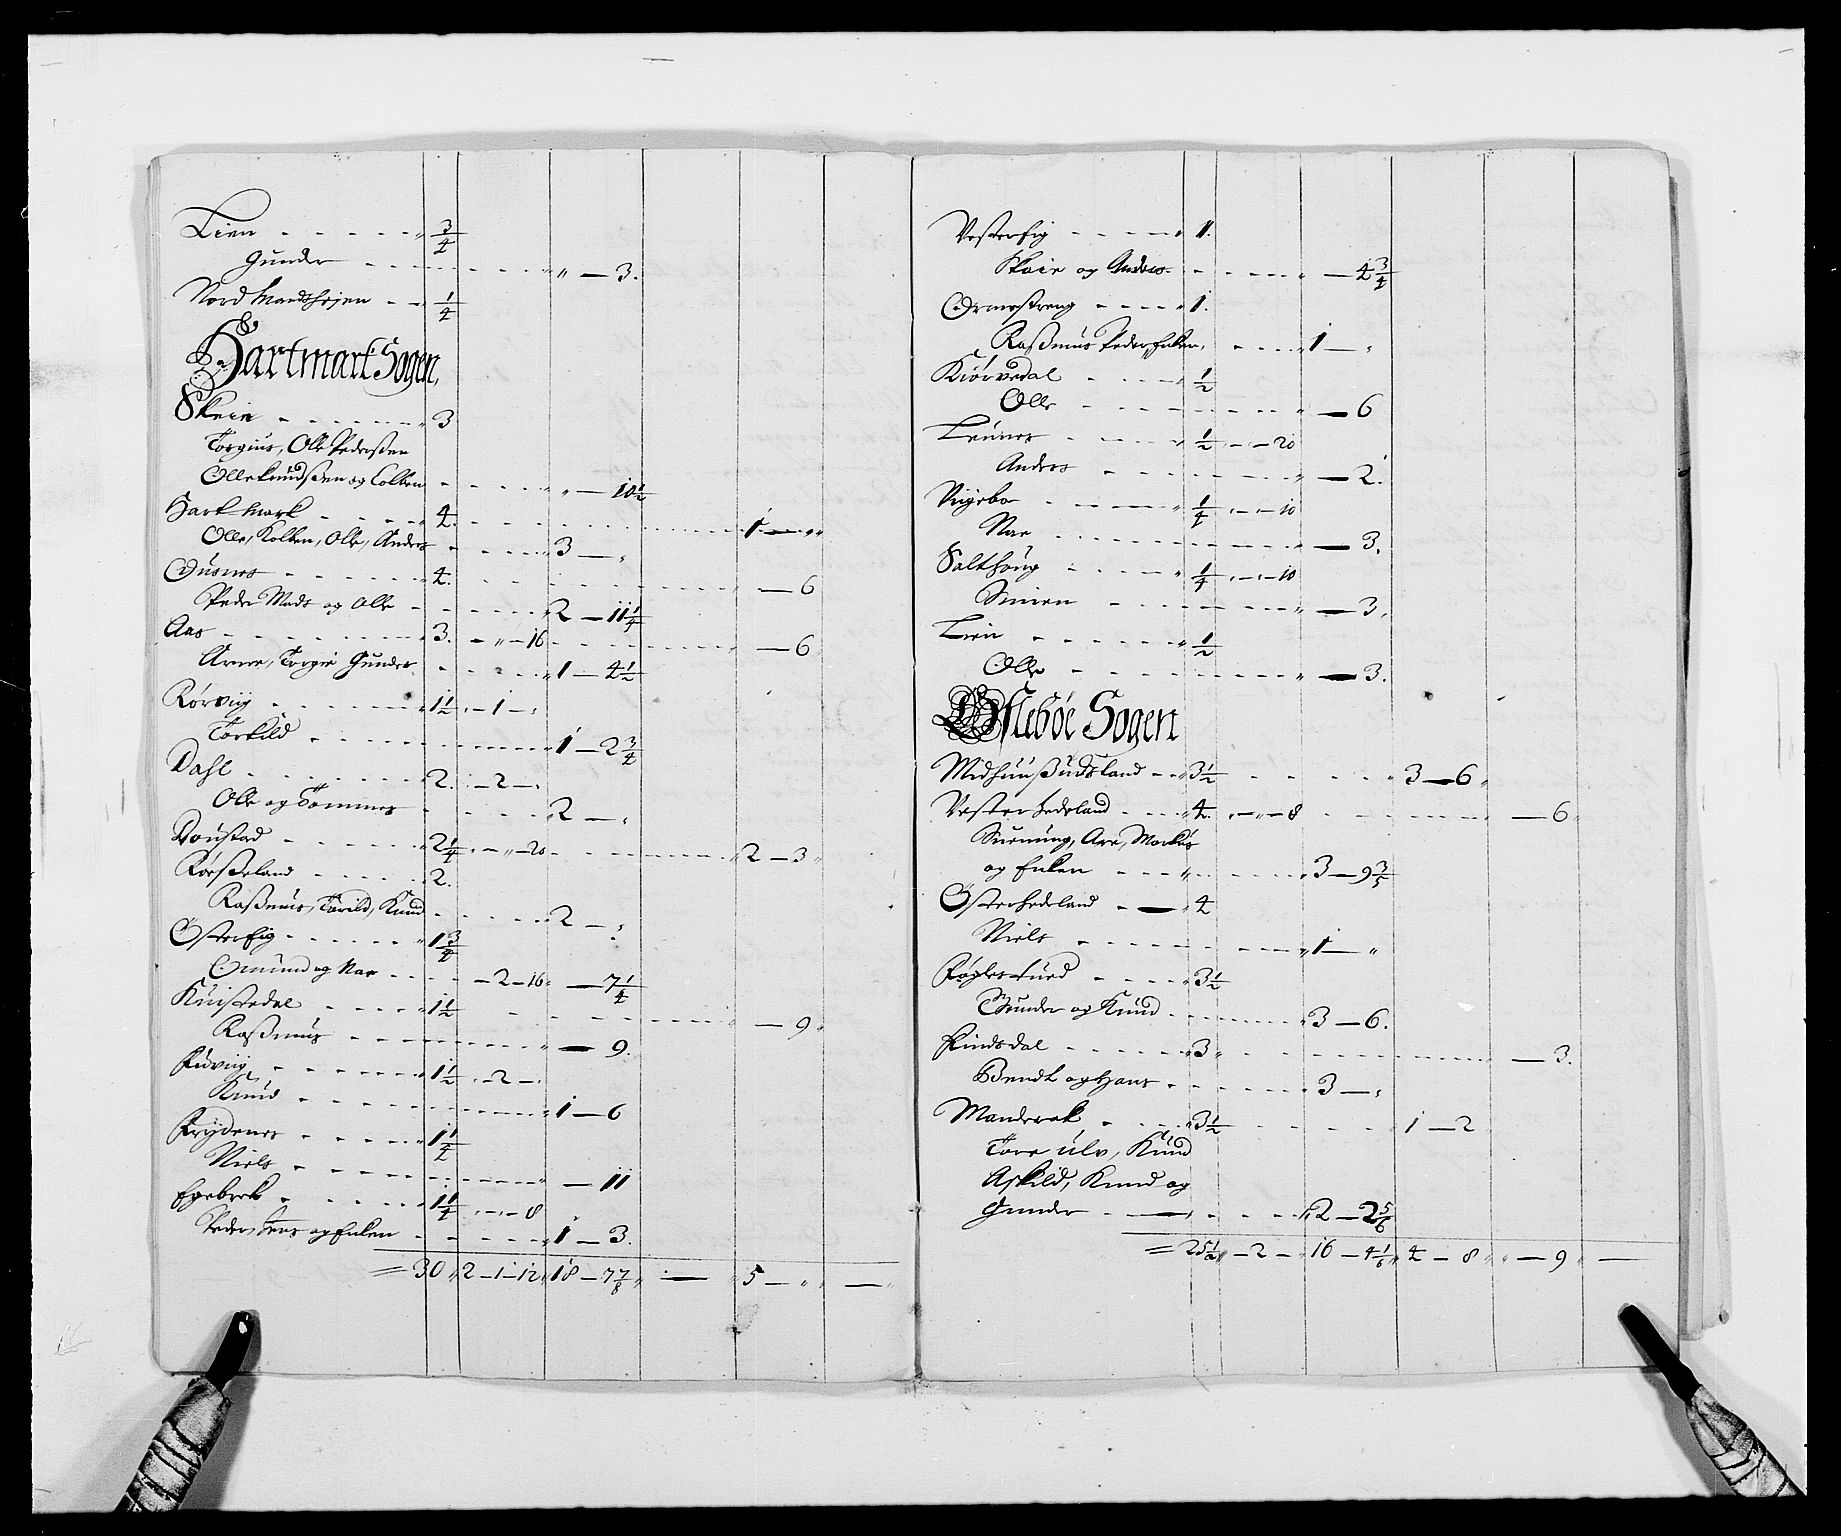 Lien - - - - - - " 3/4
Gunder - - - - - - - - " — 3.
Nord Mandshejen - - " 1/4
Hartmark Sogen,
Skeie - - - - - - " 3
Torgiius, Olle Pederßen
Olle Knudßen og Colben - - - - " " — 10 1/2
Hartmark - - - - " 4. - - - - - - - - 1 — " "
Olle, Kolben, Olle, Anders - - - - " 3 — "
Øusnes - - - - - " 4. - - - - - - - - — 6
Peder Mads og Olle - - - - - " 2 — 11 1/4
Aas - - - - - - - " 3. - " - 16 - - - - - — 6
Arne, Torgie Gunder - - - - " 1 — 4 1/2
Rørviig - - - - - " 1 1/2 " - 1 - "
Torkild - - - - - - - - " 1 — 2 3/4
Dahl - - - - - - " 2. - 2 - "
Olle og Tommes - - - - " 2 — "
Doustad - - - - - " 2 1/4 " - " - 20 - - - - - " 2 — 3 "
Røeßeland - - - - - " 2.
Raßmus, Tarild, Knud - - - - " 2 — "
Østerfig - - - - - " 1 3/4
Omund og Nar - - - - 2 - 16 " — 7 1/4
Knistedal - - - - " 1 1/2 - - - - - - - " — 9 "
Raßmus - - - - - - - - " — 9.
Fidviig - - - - - - " 1 1/2 " - 2 - "
Knud - - - - - - - - " 1 — 6
Frydenes - - - - - " 1 1/4
Niels - - - - - - - - " — 11
Egebrek - - - - - " 1 1/4 " - " - 8
Peder, Jens og Enken - - - - " 1 — 3.
= 30 " 2 - 1 - 12 " 18 - 7 7/8 " — " 5 — " " — "
Vesterfig - - - - " 1.
Skeie og Anders - - - - - " — 4 3/4
Ormestreng - - - - " 1.
Raßmus Peders Enken, - - - - " 1 — "
Kiørvedal - - - - " 1/2
Olle - - - - - - - " — 6
Leunes - - - - " 1/2 " - " - 20
Anders - - - - - - - " — 2.
Viigebo - - - - - " 1/4 " - " - 10
Nar - - - - - - - - — 3.
Salthoug - - - - " 1/4 " - " - 10
Simen - - - - - - - " — 3.
Lien - - - - - - " 1/2
Olle - - - - - - - - " — 3.
Øslebøe Sogen
Midhuußundsland - - " 3 1/2 - - - - - " 3 — 6 "
Vester hedeland - - - - " 4. " - " - 8 - - - - - — 6 "
Suenung, Are, Markus
og Enken - - - " - - - - " 3 — 9 3/5
Østerhedeland - — " 4
Niels - - - - - - - - " 1 — "
Føglestued - - - - " 3 1/2
Gunder og Knud - - - - - " 3 — 6.
Findsdal - - - - - " 3 " - - - - - - - — 3.
Bendt og Hans - - - - - - " 3 — "
Manderek - - - - " 3 1/2 - - - - - 1 — 2
Tore Ulv, Knud
Askild, Knud og
Gunder - — " - - - - " 2 — 2 5/6
= 25 1/2 " - 2 - " 16 — 4 1/6 " 4 — 8 " " — 9 " —